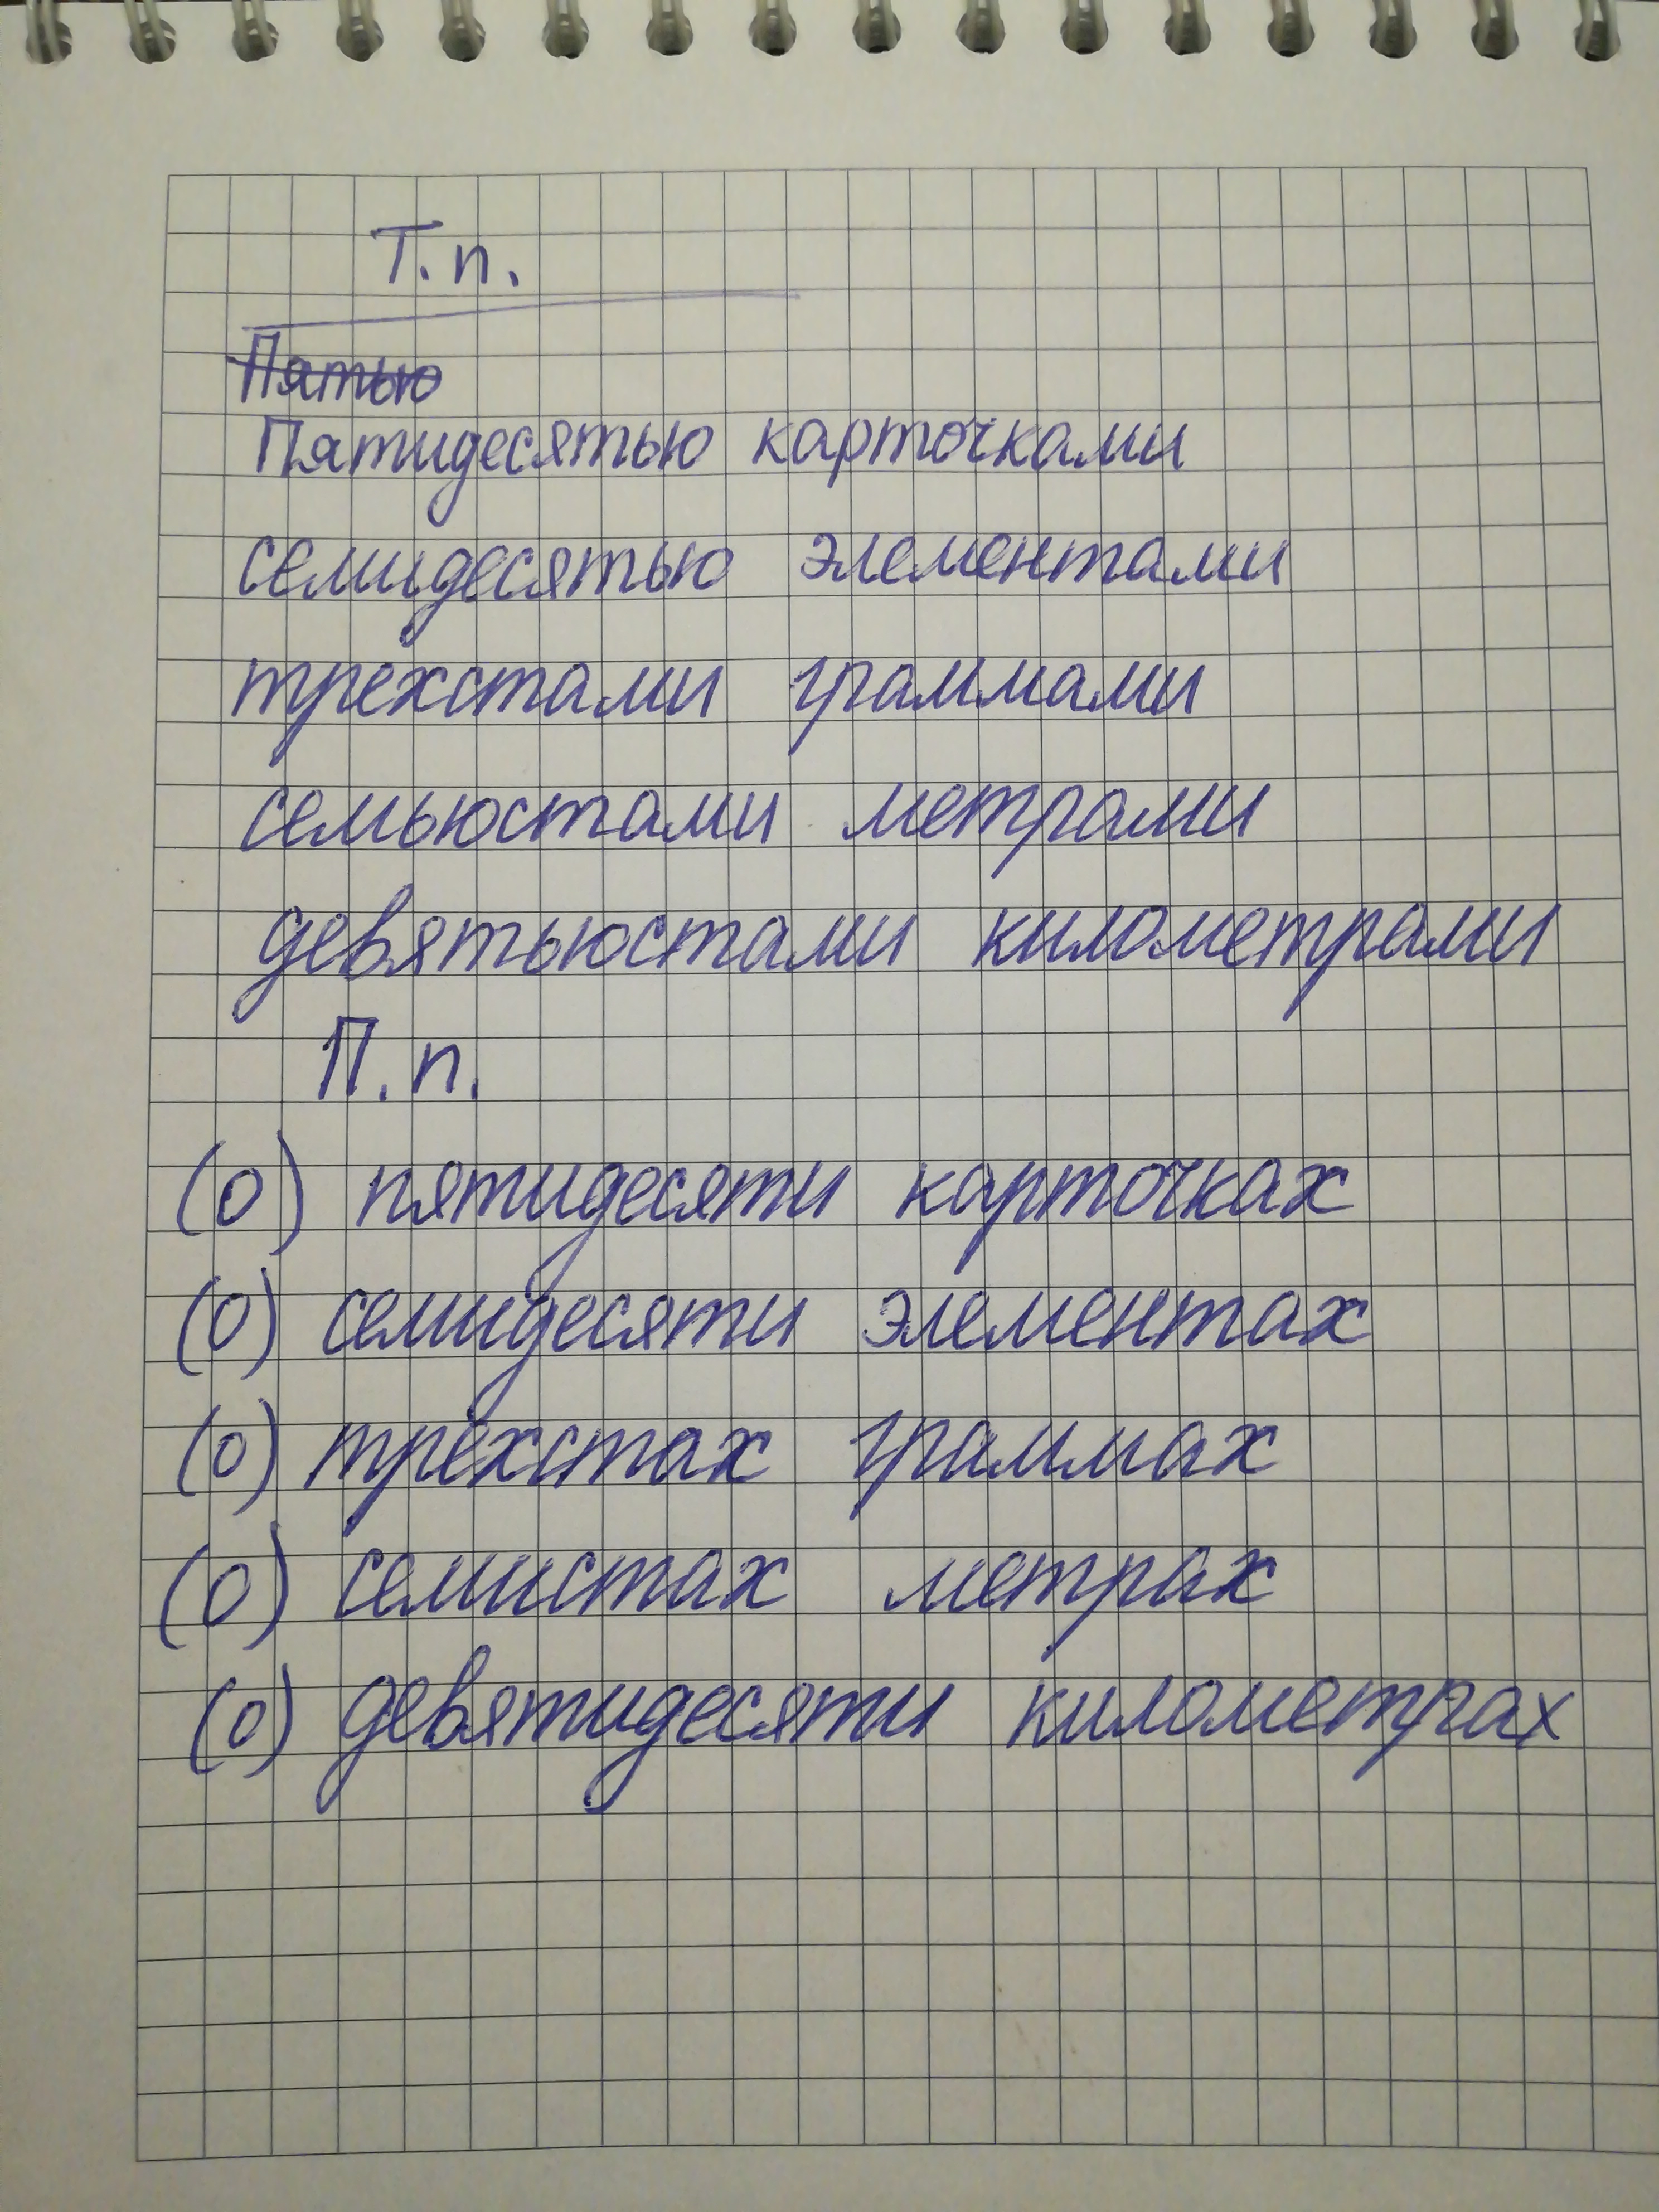 Т. п.
Пятью
Пятидесятью карточками
семидесятью элементами
трехстами граммами
семьюстами метрами
девятьюстами километрами
П. п.
(о) пятидесяти карточках
(о) семидесяти элементах
(о) трёхстах граммах
(о) семистах метрах
(о) девятидесяти километрах